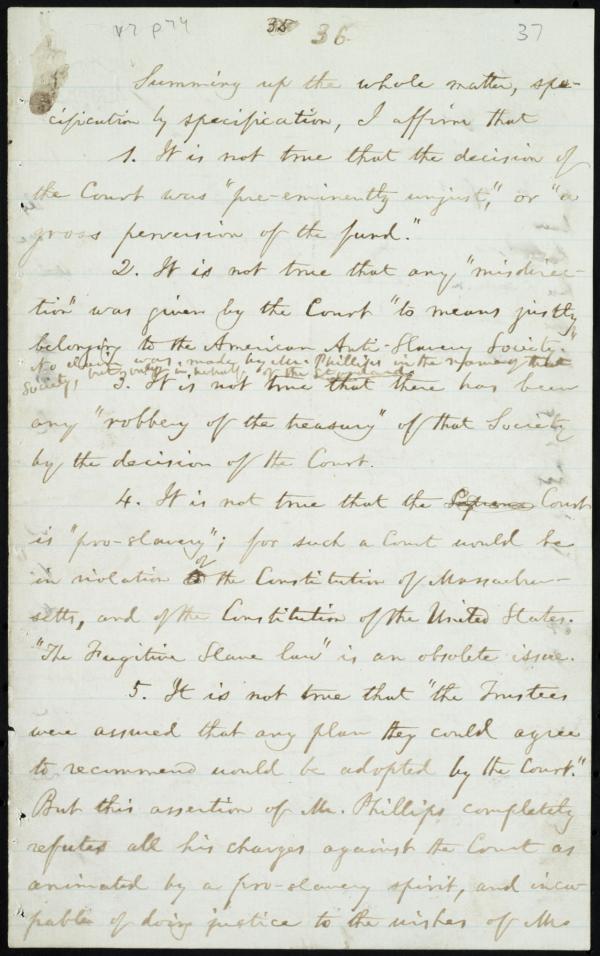 v7 p74
35 36
37
Summing up the whole matter, spe-
cification by specification, I affirm that
1. It is not true that the decision of
the Court was "pre-eminently unjust," or "a
gross perversion of the fund."
2. It is not true that any "misdirec-
tion" was given by the Court "to means justly
belonging to the American Anti-Slavery Society."
No claim was made by Mr. Phillips in the name of that
Society, but only in behalf of the Standard.
3. It is not true that there has been
any "robbery of the treasury" of that Society
by the decision of the Court.
4. It is not true that the Supreme Court
is "pro-slavery"; for such a Court would be
in violation of the Constitution of Massachu-
setts, and of the Constitution of the United States.
"The Fugitive Slave law" is an obsolete issue.
5. It is not true that "the Trustees
were assured that any plan they could agree
to recommend would be adopted by the Court."
But this assertion of Mr. Phillips completely
refutes all his charges against the Court as
animated by a pro-slavery spirit, and inca-
pable of doing justice to the wishes of Mr.